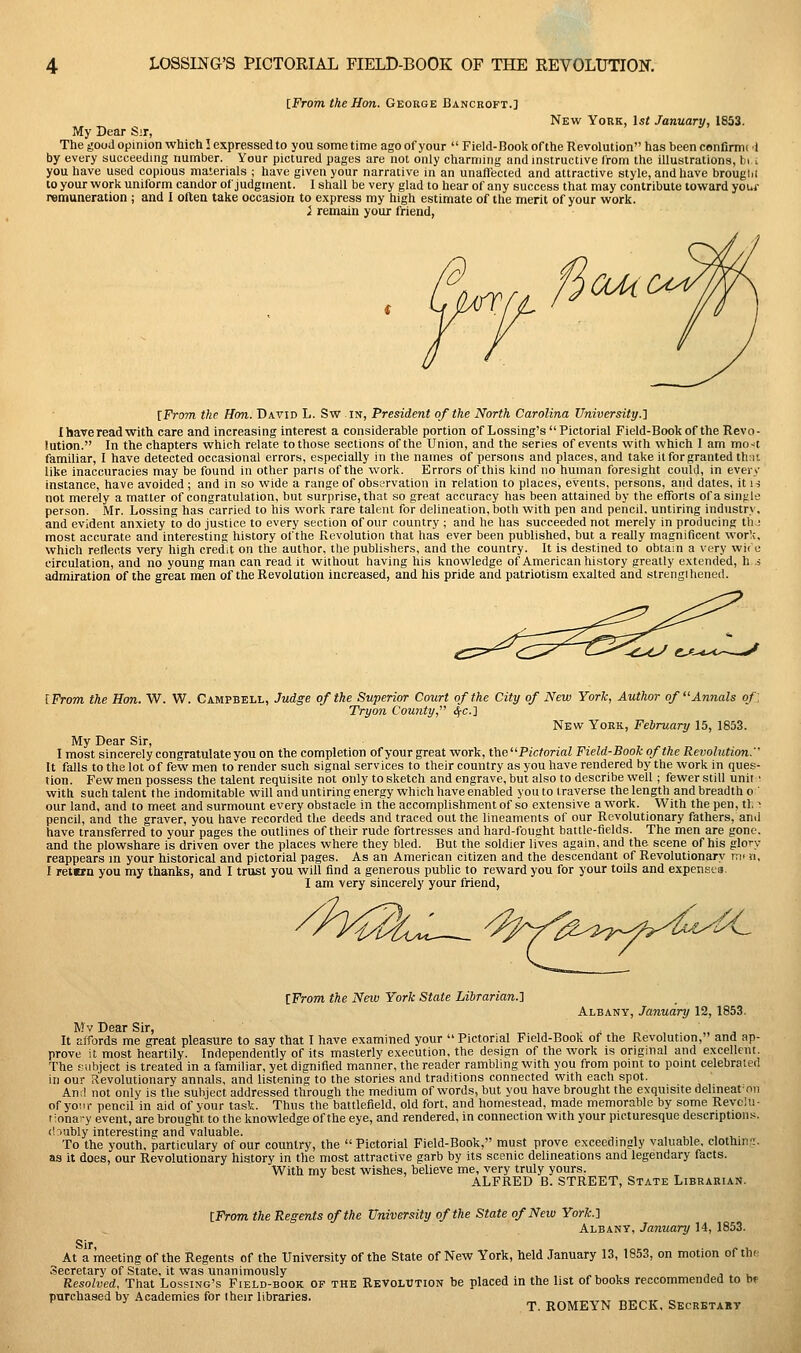 4 LOSSING'S PICTORIAL FIELD-BOOK OF THE REVOLUTION.
[From the Hon. GEORGE BANCROFT.]
NEW YORK, 1st January, 1853.
My Dear Sir,
The good opinion which I expressed to you some time ago of your “ Field-Book of the Revolution” has been
by every succeeding number. Your pictured pages are not only charming and instructive from the illustrations,
you have used copious materials ; have given your narrative in an unaffected and attractive style, and have
to your work uniform candor of judgment. I shall be very glad to hear of any success that may contribute toward your
remuneration ; and I often take occasion to express my high estimate of the merit of your work.
I remain your friend,
George Bancroft
[From the Hon. DAVID L. SW IN, President of the North Carolina University.]
I have read with care and increasing interest a considerable portion of Lossing's “ Pictorial Field-Book of the Revo-
lution.” In the chapters which relate to those sections of the Union, and the series of events with which I am most
familiar, I have detected occasional errors, especially in the names of persons and places, and take it for granted that
like inaccuracies may be found in other parts of the work. Errors of this kind no human foresight could, in every
instance, have avoided ; and in so wide a range of observation in relation to places, events, persons, and dates, it is
not merely a matter of congratulation, but surprise, that so great accuracy has been attained by the efforts of a single
person. Mr. Lossing has carried to his work rare talent for delineation, both with pen and pencil, untiring industry,
and evident anxiety to do justice to every section of our country ; and he has succeeded not merely in producing the
most accurate and interesting history of the Revolution that has ever been published, but a really magnificent work,
which reflects very high credit on the author, the publishers, and the country. It is destined to obtain a very
circulation, and no young man can read it without having his knowledge of American history greatly extended, h s
admiration of the great men of the Revolution increased, and his pride and patriotism exalted and strengthened.
[From the Hon. W. W. CAMPBELL, Judge of the Superior Court of the City of New York, Author of “Annals of
Tryon County,” &c.]
NEW YORK, February 15, 1853.
My Dear Sir,
I most sincerely congratulate you on the completion of your great work, the “Pictorial Field-Book of the Revolution.”
It falls to the lot of few men to render such signal services to their country as you have rendered by the work in ques-
tion. Few men possess the talent requisite not only to sketch and engrave, but also to describe well ; fewer still unit
with such talent the indomitable will and untiring energy which have enabled you to traverse the length and breadth o
our land, and to meet and surmount every obstacle in the accomplishment of so extensive a work. With the pen, th
pencil, and the graver, you have recorded the deeds and traced out the lineaments of our Revolutionary fathers, and
have transferred to your pages the outlines of their rude fortresses and hard-fought battle-fields. The men are gone,
and the plowshare is driven over the places where they bled. But the soldier lives again, and the scene of his glory
reappears in your historical and pictorial pages. As an American citizen and the descendant of Revolutionary
I return you my thanks, and I trust you will find a generous public to reward you for your toils and expenses.
I am very sincerely your friend,
William W Campbell
[From the New York State Librarian.]
ALBANY, January 12, 1853.
My Dear Sir,
It affords me great pleasure to say that I have examined your “ Pictorial Field-Book of the Revolution,” and ap-
prove it most heartily. Independently of its masterly execution, the design of the work is original and excellent.
The subject is treated in a familiar, yet dignified manner, the reader rambling with you from point to point celebrated
in our Revolutionary annals, and listening to the stories and traditions connected with each spot.
And not only is the subject addressed through the medium of words, but you have brought the exquisite delineation
of your pencil in aid of your task. Thus the battlefield, old fort, and homestead, made memorable by some Revolu-
tionary event, are brought to the knowledge of the eye, and rendered, in connection with your picturesque descriptions,
doubly interesting and valuable.
To the youth, particulary of our country, the “ Pictorial Field-Book,” must prove exceedingly valuable, clothing,
as it does, our Revolutionary history in the most attractive garb by its scenic delineations and legendary facts.
With my best wishes, believe me, very truly yours,
ALFRED B. STREET, STATE LIBRARIAN.
[From the Regents of the University of the State of New York.]
ALBANY, January 14, 1853.
Sir,
At a meeting of the Regents of the University of the State of New York, held January 13, 1853, on motion of the
Secretary of State, it was unanimously
Resolved, That LOSSING'S FIELD-BOOK OF THE REVOLUTION be placed in the list of books reccommended to be
purchased by Academies for their libraries.
T. ROMEYN BECK, SECRETARY